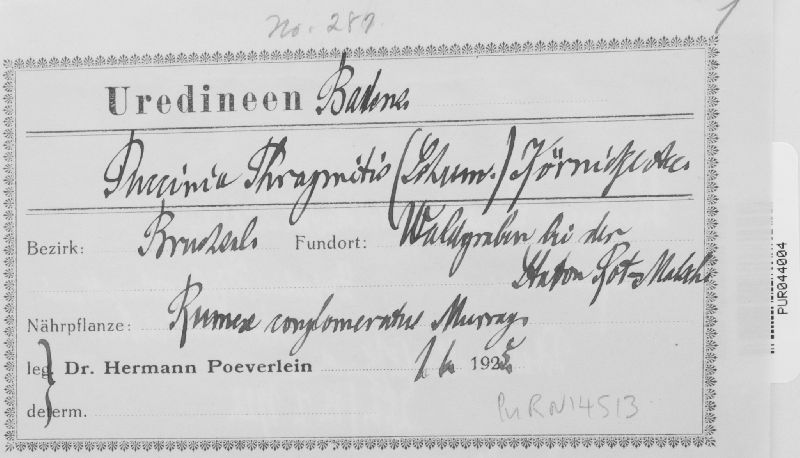 No. 287.
Uredineen Badens.
Puccinia Phragmitis (Schum.) Körnicke
Bezirk: Bruchsal. Fundort: Waldgraben bei der
Station Rot-Malsch.
Nährpflanze: Rumex conglomeratus Murray.
leg. Dr. Hermann Poeverlein 192
determ.
PUR N14513
PUR044004